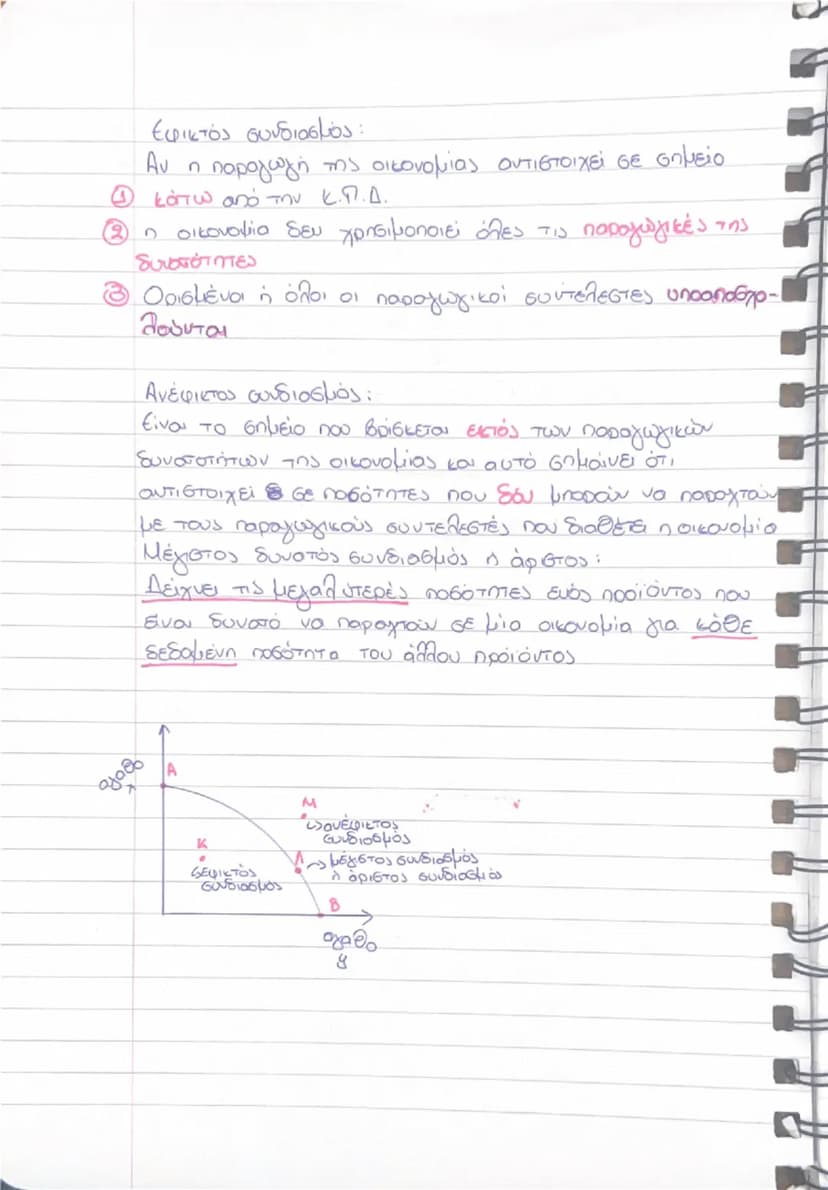 Εφικτός συνδιασμός:
Αν η παραγωγή της οικονομίας αντιστοιχεί σε σημείο
① κάτω από την Κ.Π.Δ.
② η οικονομία δεν χρησιμοποιεί όλες τις παραγωγικές της
δυνατότητες
③ Ορισμένοι ή όλοι οι παραγωγικοί συντελεστές υποαπασχο-
λούνται
Ανέφικτος συνδιασμός:
Είναι το σημείο που βρίσκεται εκτός των παραγωγικών
δυνατοτήτων της οικονομίας και αυτό σημαίνει ότι
αντιστοιχεί σε ποσότητες που δεν μπορούν να παραχτούν
με τους παραγωγικούς συντελεστές που διαθέτει η οικονομία
Μέγιστος δυνατός συνδιασμός ή άριστος:
Δείχνει τις μεγαλύτερές ποσότητες ενός προϊόντος που
είναι δυνατό να παραχτούν σε μία οικονομία για κάθε
δεδομένη ποσότητα του άλλου προϊόντος
αγαθο
Α
Μ
ανέφικτος
συνδιασμός
Κ
εφικτός
συνδιασμός
Λ
μέγιστος συνδιασμός
ή άριστος συνδιασμός
Β
αγαθο
y